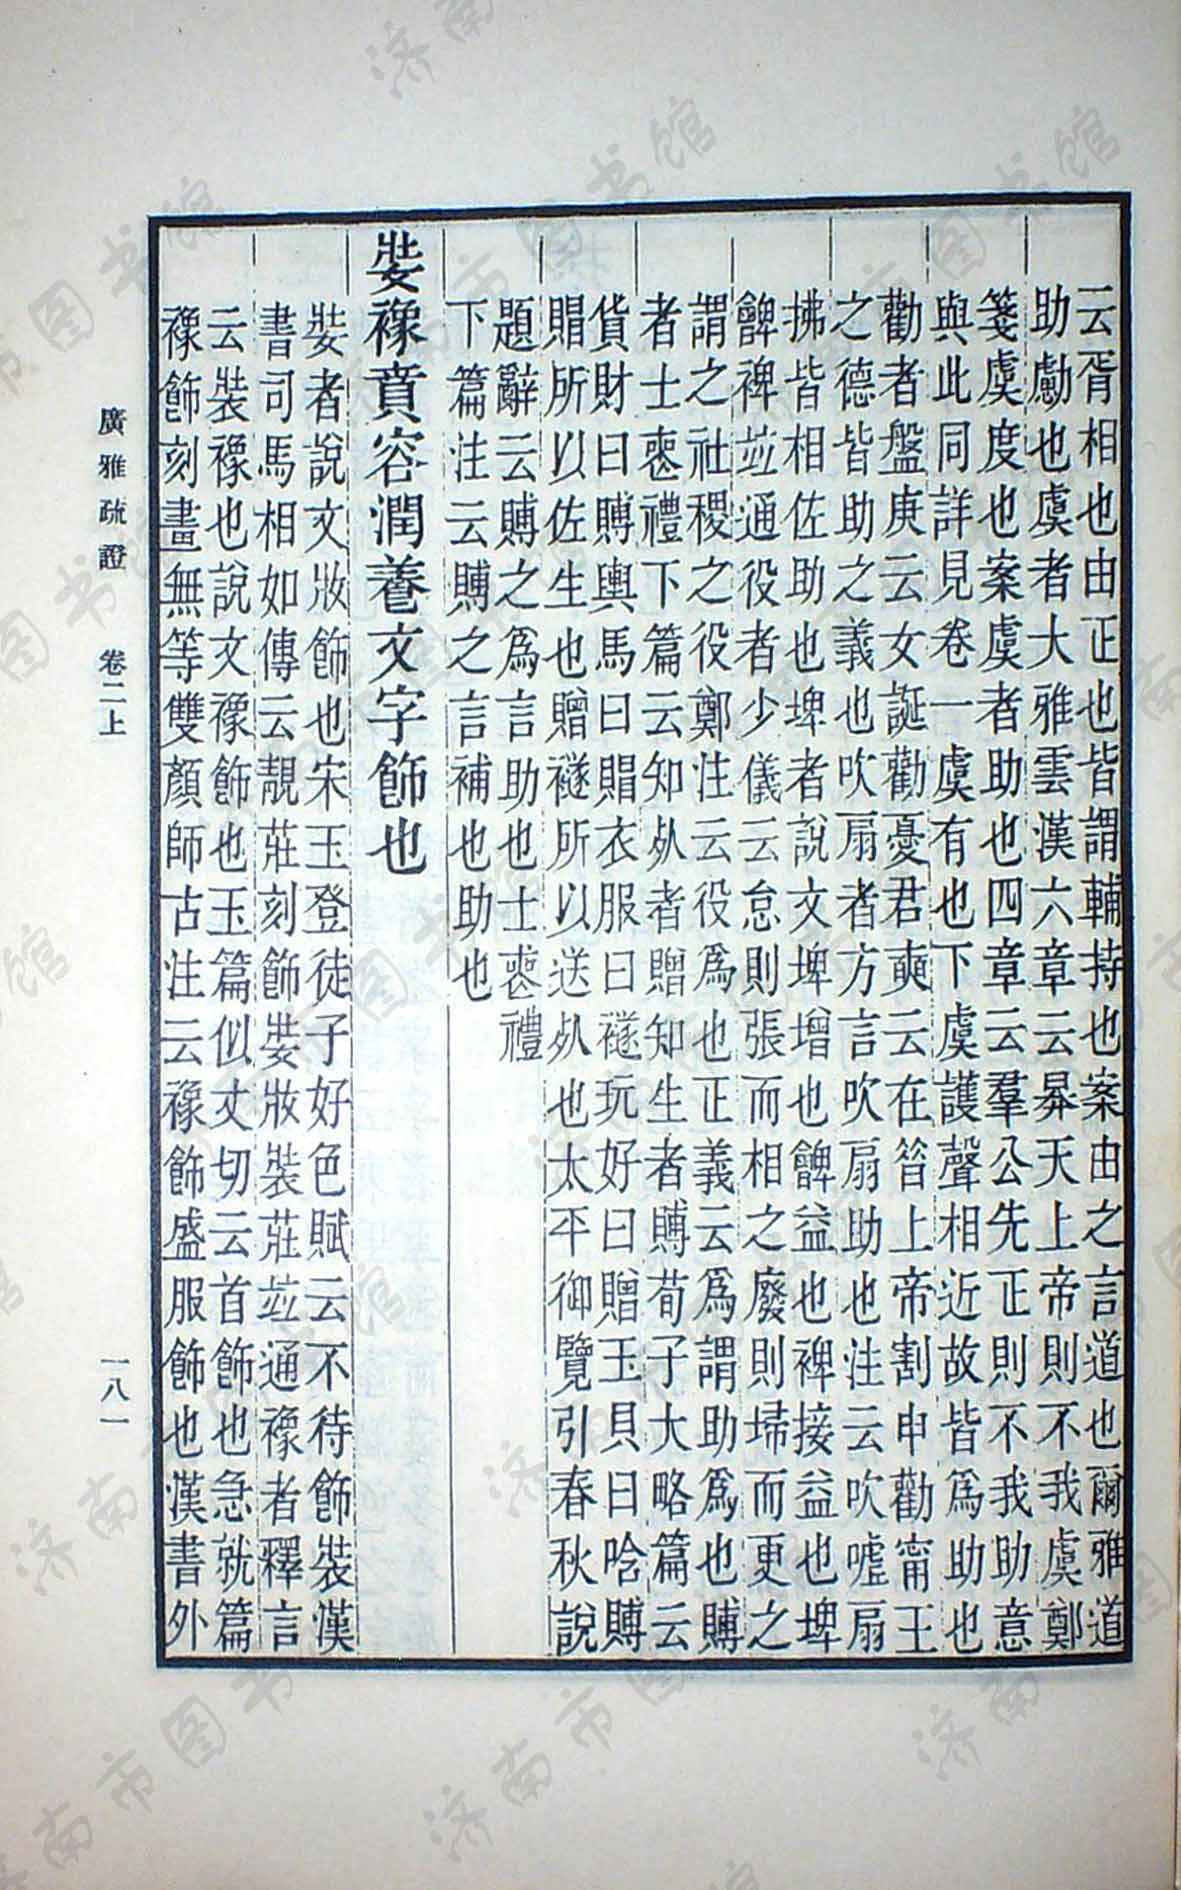 云胥相也由正也皆謂輔持也案由之言道也爾雅道
助勴也虞者大雅雲漢六章云昊天上帝則不我虞鄭
箋虞度也案虞者助也四章云羣公先正則不我助意
與此同詳見卷一虞有也下虞護聲相近故皆為助也
勸者盤庚云女誕勸憂君奭云在昔上帝割申勸甯王
之德皆助之義也吹扇者方言吹扇助也注云吹噓扇
拂皆相佐助也埤者說文埤增也䚜益也裨接益也埤
䚜裨並通役者少儀云怠則張而相之廢則埽而更之
謂之社稷之役鄭注云役為也正義云為謂助為也賻
者士喪禮下篇云知死者贈知生者賻荀子大略篇云
貨財曰賻輿馬曰賵衣服曰襚玩好曰贈玉貝曰唅賻
賵所以佐生也贈襚所以送死也太平御覽引春秋說
題辭云賻之為言助也士喪禮
下篇注云賻之言補也助也
娤襐賁容潤養文字飾也
娤者說文妝飾也宋玉登徒子好色賦云不待飾裝漢
書司馬相如傳云靚莊刻飾娤妝裝莊並通襐者釋言
云裝襐也說文襐飾也玉篇似丈切云首飾也急就篇
襐飾刻畫無等雙顏師古注云襐飾盛服飾也漢書外
廣雅疏證 卷二上 一八一
济南市图书馆